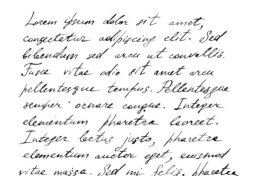 Lorem ipsum dolor sit amet,
consectetur adipiscing elit. Sed
bibendum sed arcu ut convallis.
Fusce vitae odio sit amet arcu
pellentesque tempus. Pellentesque
semper ornare congue. Integer
elementum pharetra laoreet.
Integer lectus justo, pharetra
elementum auctor eget, euismod
vitae massa. Sed mi felis, pharetra